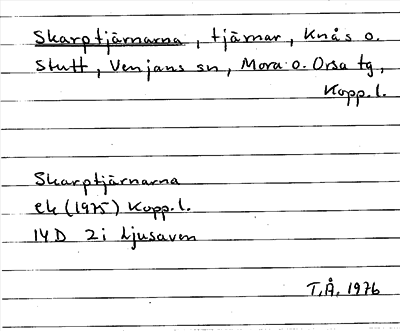 Skarptjärnarna, tjärnar, Knås o.
Stutt, Venjans sn, Mora o. Orsa tg,
Kopp.l.
Skarptjärnarna
ek (1975) Kopp.l.
14D 2i Ljusaven
T.Å. 1976